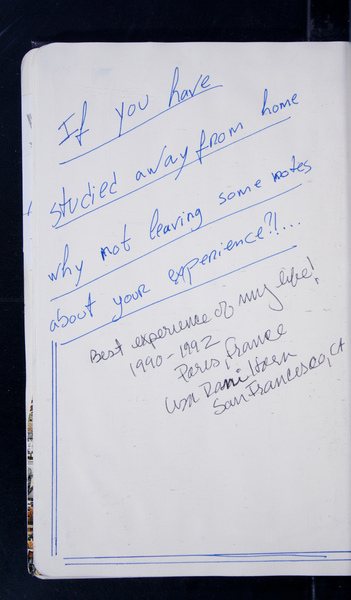 If you have
studied away from home
why not leaving some notes
about your experience?!...
Best experience of my life!
1990-1992
Paris, France
Lisa
San Francisco, CA